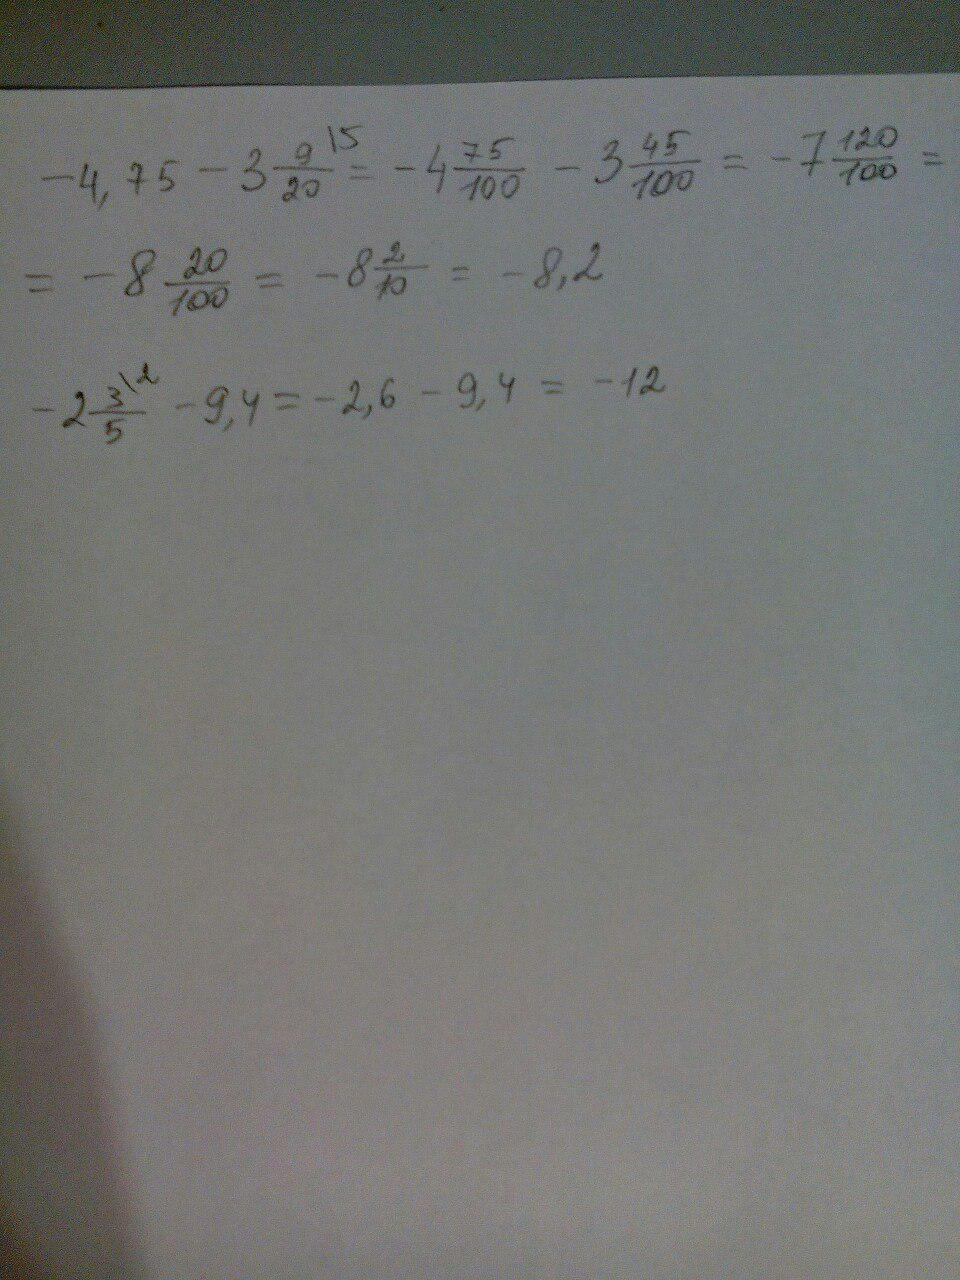 -4,75 - 3 9/20 \5 = -4 75/100 - 3 45/100 = -7 120/100 =
= -8 20/100 = -8 2/10 = -8,2
-2 3/5 \2 - 9,4 = -2,6 - 9,4 = -12